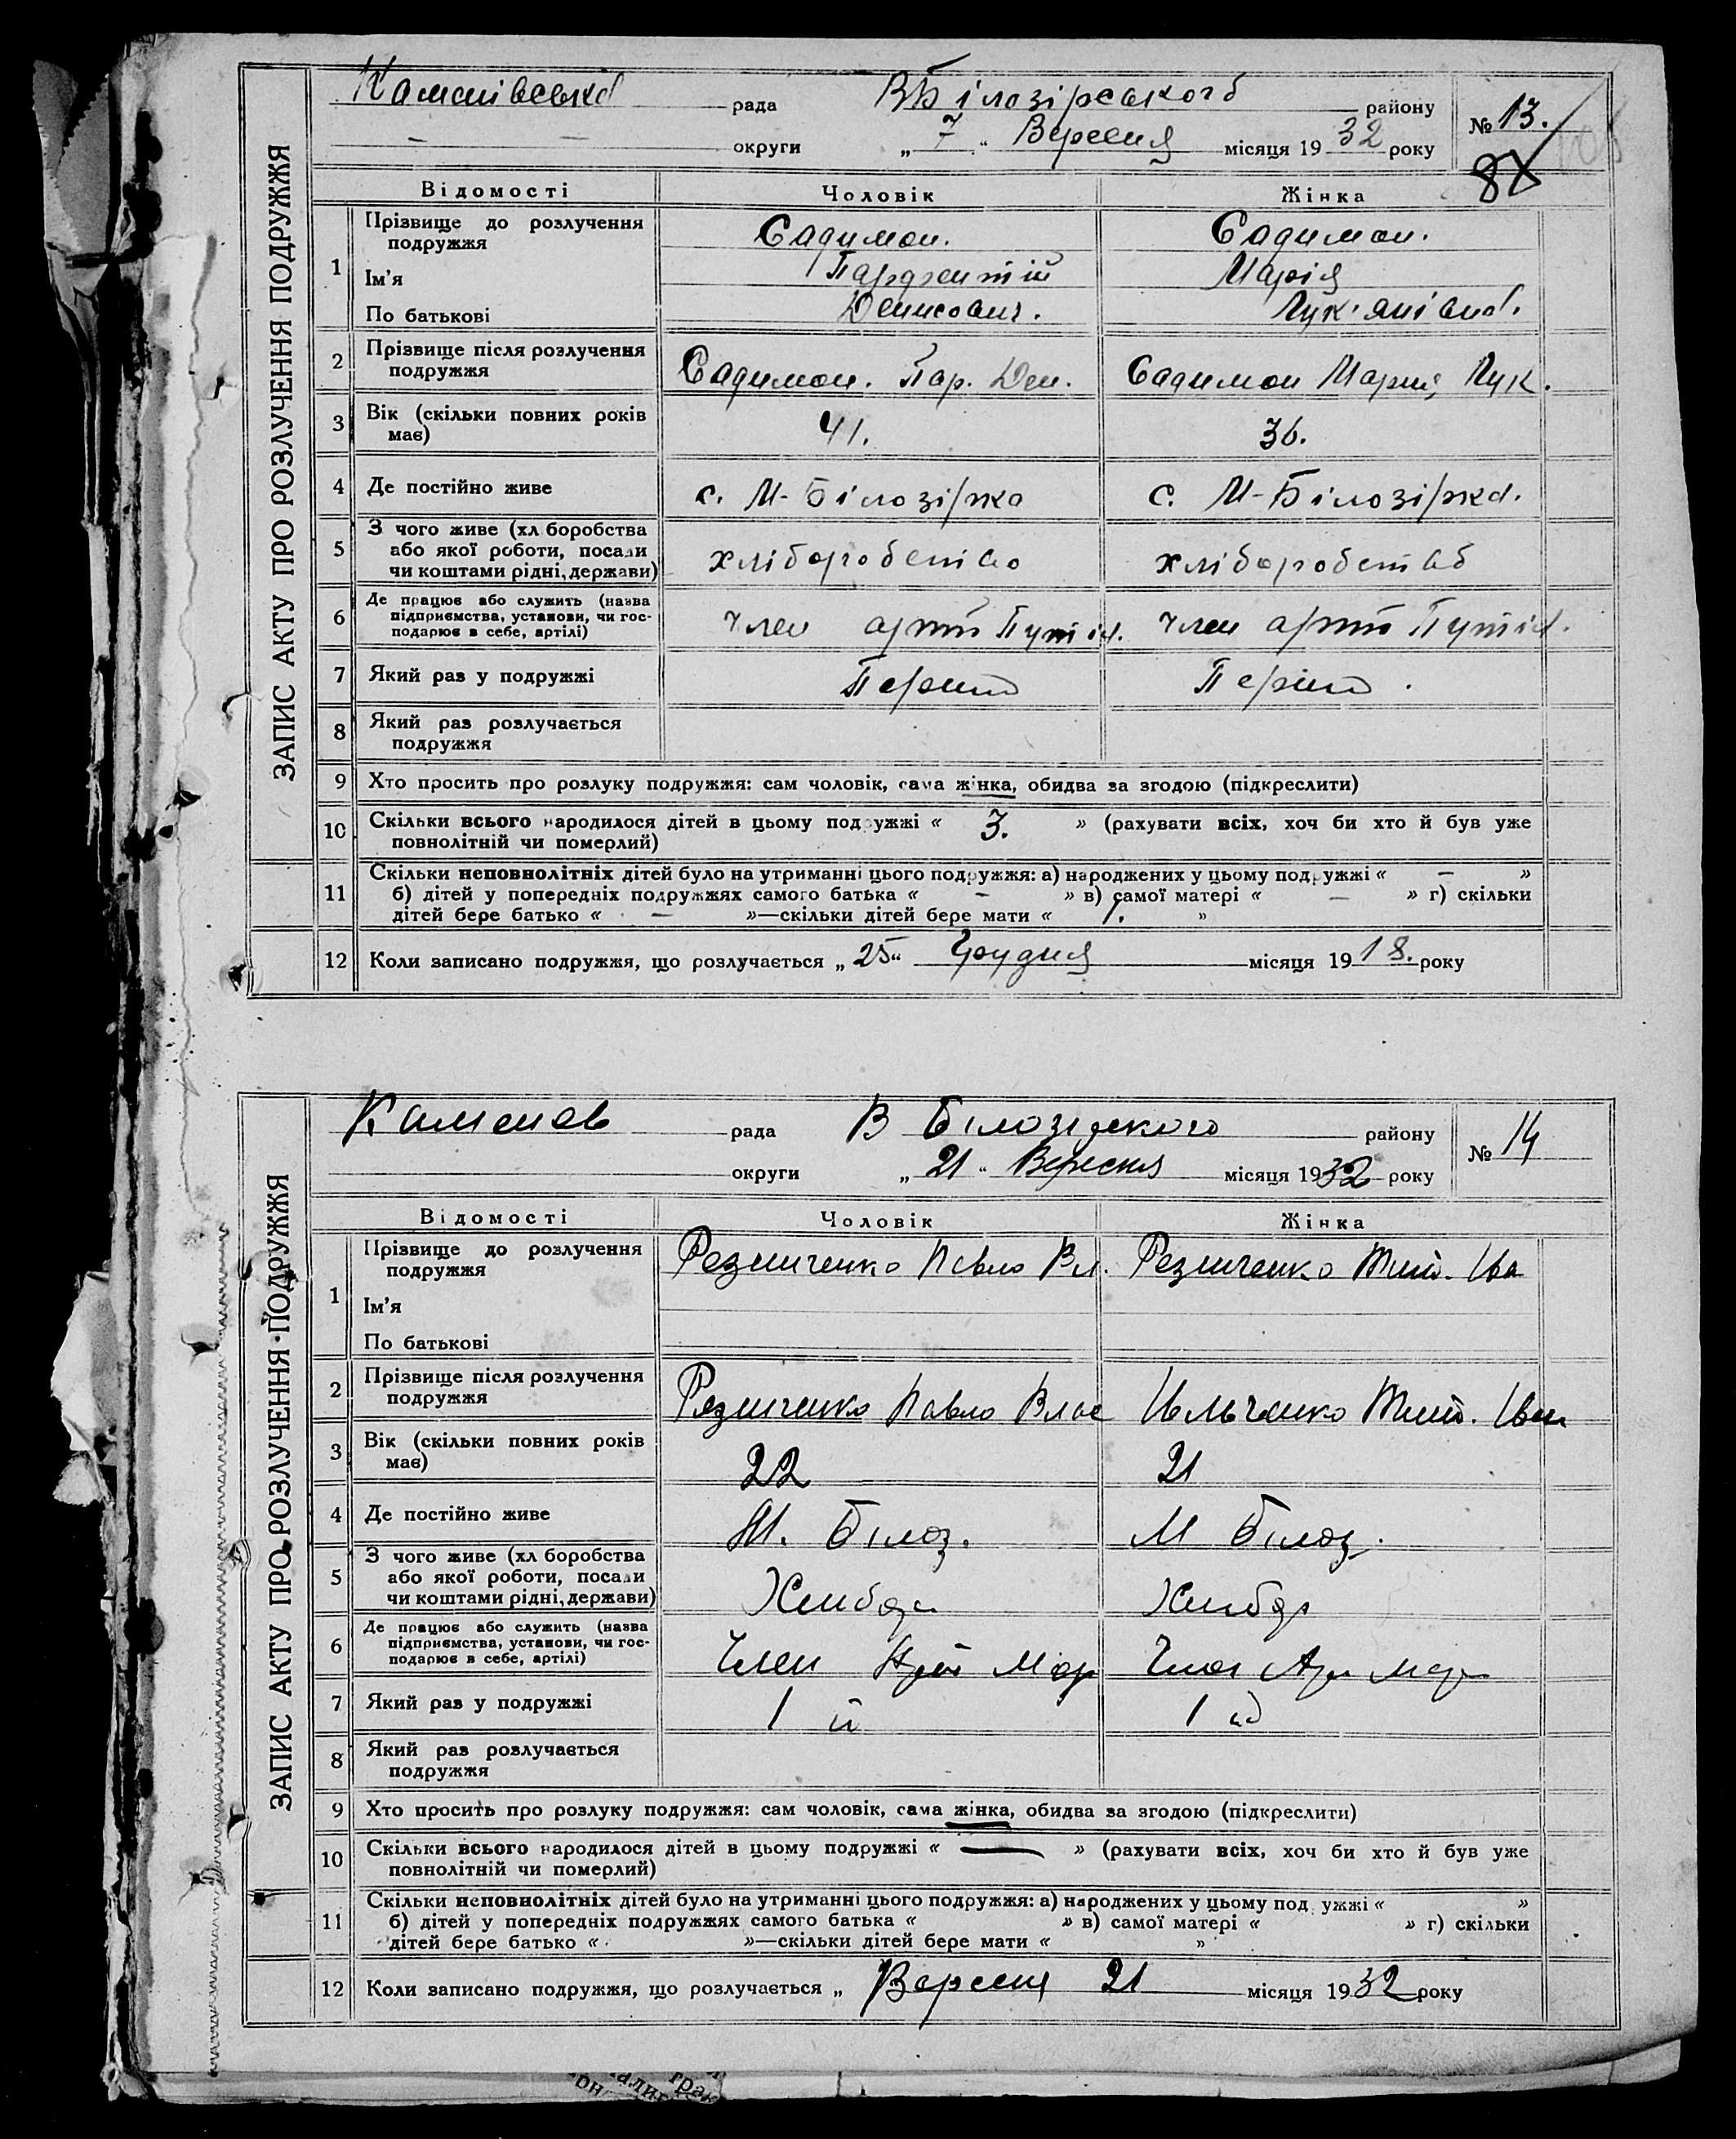 ЗАПИС АКТУ ПРО РОЗЛУЧЕННЯ ПОДРУЖЖЯ
рада В Білозірського району
№ 13.
округи „ 7 “ Вересня місяця 19 32 року
87
Відомості Чоловік Жінка
1 Прізвище до розлучення подружжя Садимон. Садимон.
Ім'я Парфентій Марія
По батькові Денисович. Лук'янівна.
2 Прізвище після розлучення подружжя Садимон. Пар. Ден. Садимон Мария Лук.
3 Вік (скільки повних років має) 41. 36.
4 Де постійно живе с. М-Білозірка с. М-Білозірка.
5 З чого живе (хл боробства або якої роботи, посади чи коштами рідні, держави) хліборобство хліборобство
6 Де працює або служить (назва підприємства, установи, чи господарює в себе, артілі) член член
7 Який раз у подружжі
8 Який раз розлучається подружжя
9 Хто просить про розлуку подружжя: сам чоловік, сама жінка, обидва за згодою (підкреслити)
10 Скільки всього народилося дітей в цьому подружжі « 3. » (рахувати всіх, хоч би хто й був уже
повнолітній чи померлий)
11 Скільки неповнолітніх дітей було на утриманні цього подружжя: а) народжених у цьому подружжі « — »
б) дітей у попередніх подружжях самого батька « — » в) самої матері « — » г) скільки
дітей бере батько « — »—скільки дітей бере мати « 1. »
12 Коли записано подружжя, що розлучається „ 25 “ Грудня місяця 19 18. року
ЗАПИС АКТУ ПРО РОЗЛУЧЕННЯ ПОДРУЖЖЯ
Каменев рада В Білозірского району
№ 14
округи „ 21 “ Вересня місяця 19 32 року
Відомості Чоловік Жінка
1 Прізвище до розлучення подружжя Резниченко Павло Вл. Резниченко Ива
Ім'я
По батькові
2 Прізвище після розлучення подружжя Резниченко Павло Влас Ильченко Иван
3 Вік (скільки повних років має) 22 21
4 Де постійно живе М. Білоз. М Білоз.
5 З чого живе (хл боробства або якої роботи, посади чи коштами рідні, держави)
6 Де працює або служить (назва підприємства, установи, чи господарює в себе, артілі) Член Член
7 Який раз у подружжі 1 й 1 й
8 Який раз розлучається подружжя
9 Хто просить про розлуку подружжя: сам чоловік, сама жінка, обидва за згодою (підкреслити)
10 Скільки всього народилося дітей в цьому подружжі « — » (рахувати всіх, хоч би хто й був уже
повнолітній чи померлий)
11 Скільки неповнолітніх дітей було на утриманні цього подружжя: а) народжених у цьому под ужжі « »
б) дітей у попередніх подружжях самого батька « » в) самої матері « » г) скільки
дітей бере батько « »—скільки дітей бере мати « »
12 Коли записано подружжя, що розлучається „ Вересня 21 місяця 19 32 року